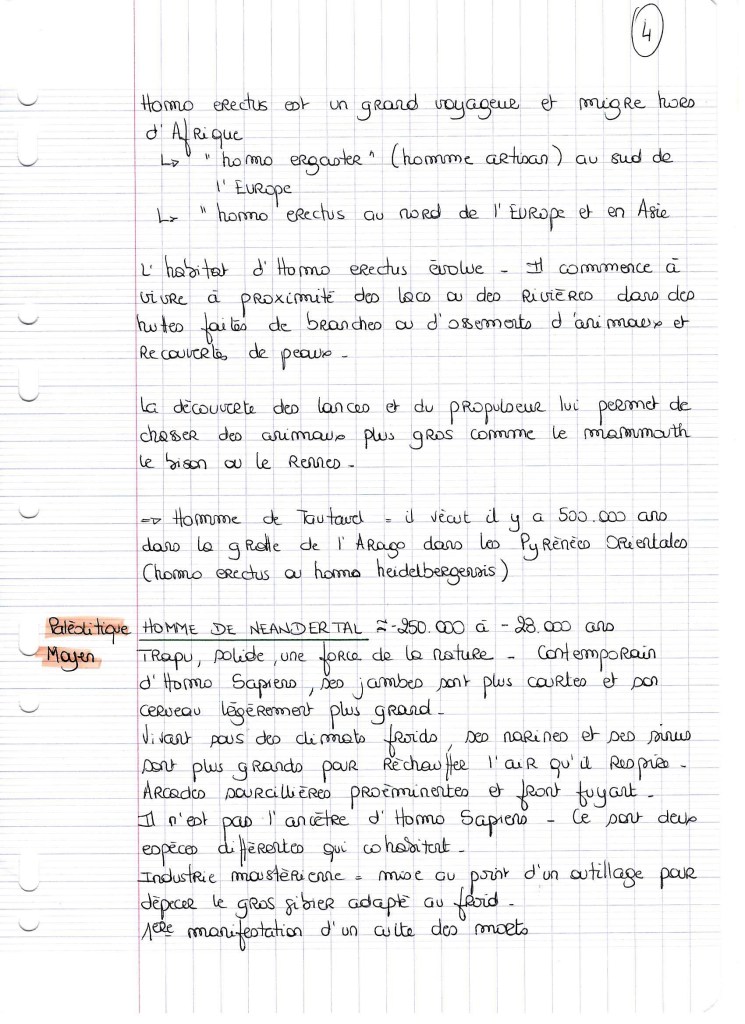 4
Homo erectus est un grand voyageur et migre hors
d'Afrique
↳ "homo ergaster" (homme artisan) au sud de
l'Europe
↳ "homo erectus au nord de l'Europe et en Asie
L'habitat d'Homo erectus évolue - Il commence à
vivre à proximité des lacs ou des rivières dans des
hutes faites de branches ou d'ossements d'animaux et
recouvertes de peaux -
La découverte des lances et du propulseur lui permet de
chasser des animaux plus gros comme le mammouth
le bison ou le Rennes -
=> Homme de Tautavel = il vécut il y a 500.000 ans
dans la grotte de l'Arago dans les Pyrénées Orientales
(homo erectus ou homo heidelbergensis)
Paléolitique HOMME DE NEANDERTAL ≈ -250.000 à -28.000 ans
Moyen Trapu, solide, une force de la nature - Contemporain
d'Homo Sapiens, ses jambes sont plus courtes et son
cerveau légèrement plus grand -
Vivant sous des climats froids, ses narines et ses sinus
sont plus grands pour réchauffer l'air qu'il respire -
Arcades sourcillières proéminentes et front fuyant -
Il n'est pas l'ancêtre d'Homo Sapiens - Ce sont deux
espèces différentes qui cohabitent -
Industrie moustérienne = mise au point d'un outillage pour
dépecer le gros gibier adapté au froid -
1ère manifestation d'un culte des morts